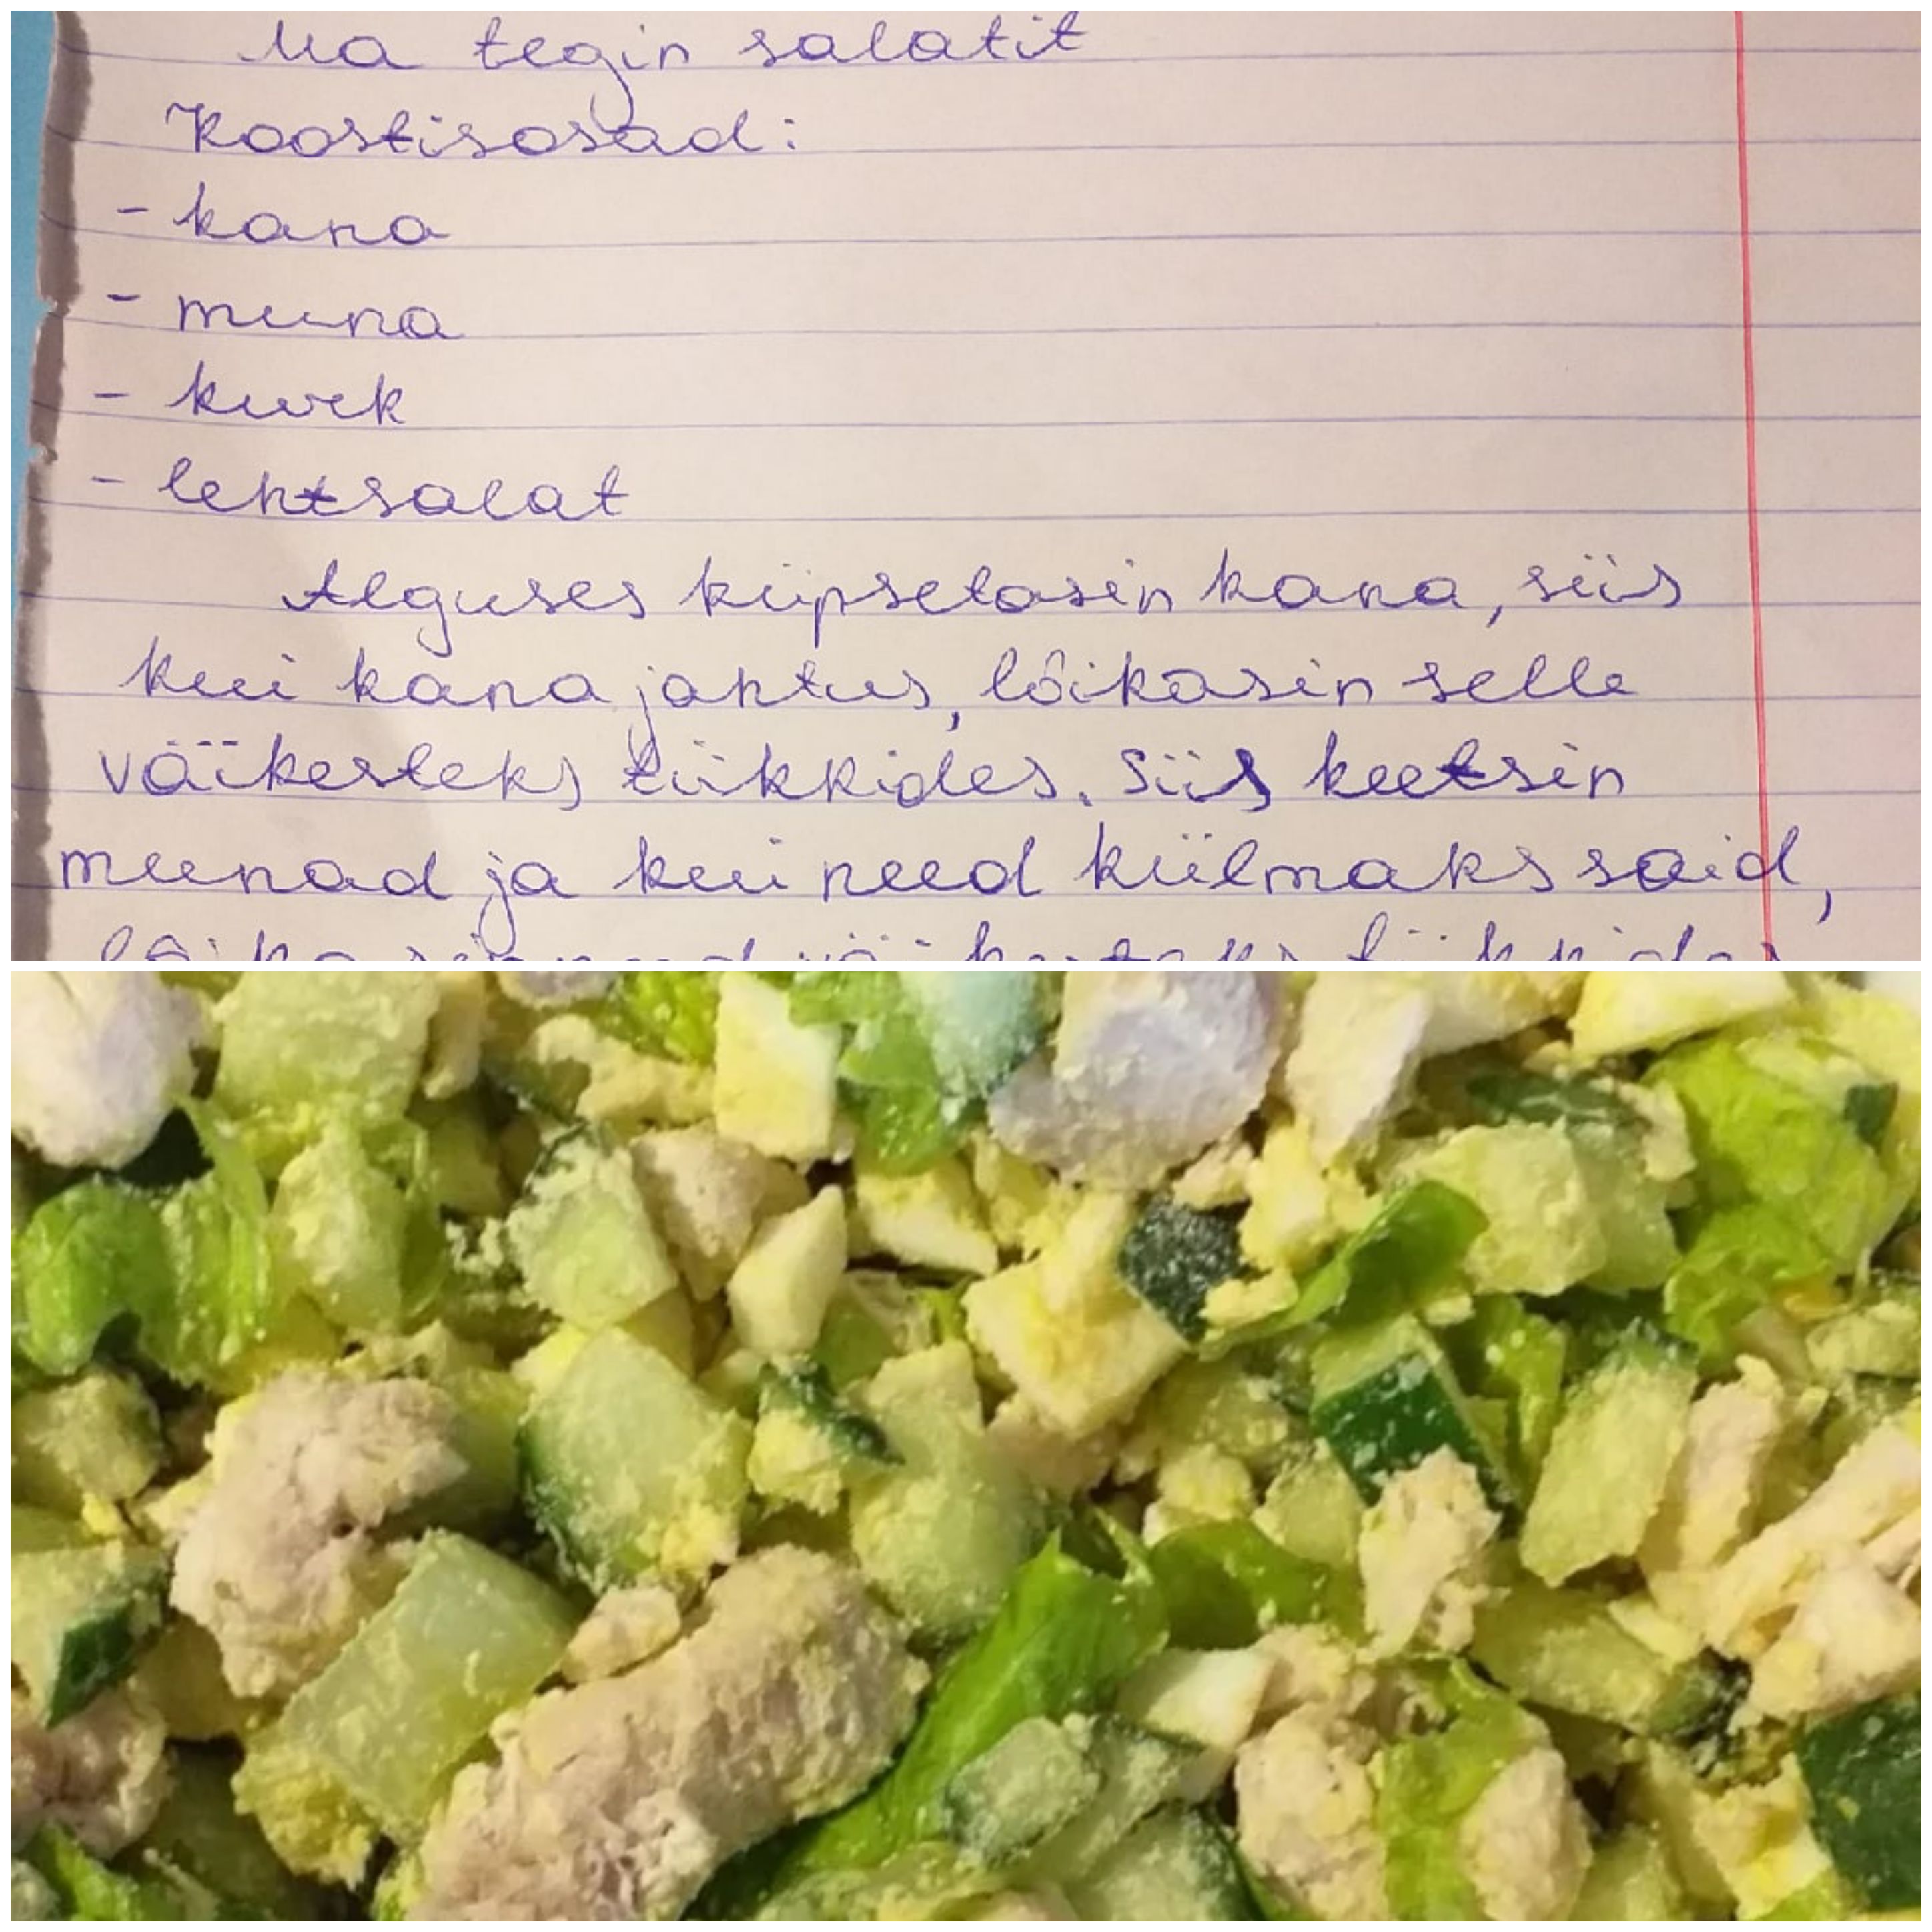 Ma tegin salatit
Koostisosad:
- kana
- muna
- kurk
- lehtsalat
Alguses küpsetasin kana, siis
kui kana jahtus, lõikasin selle
väikesteks tükkides. Siis keetsin
munad ja kui need külmaks said,